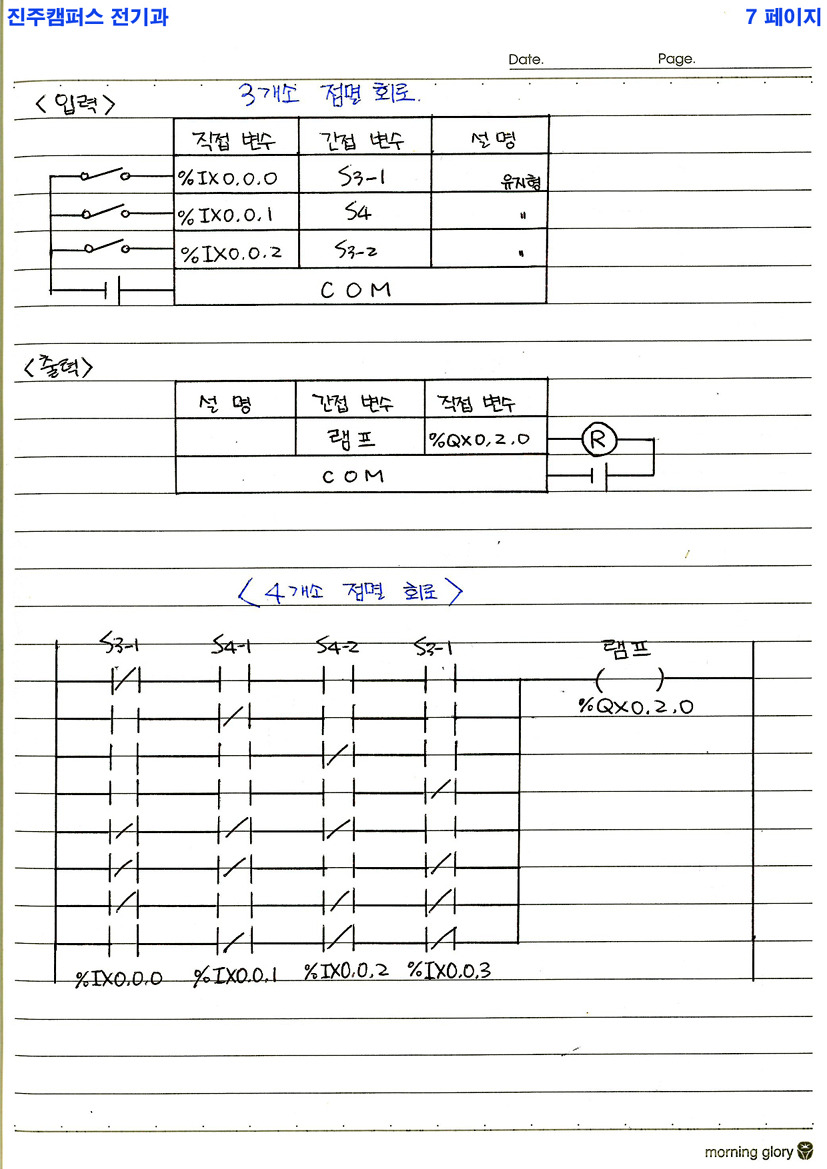 진주캠퍼스 전기과 7 페이지
Date. Page.
<입력> 3개소 점멸 회로.
직접 변수 간접 변수 설명
%IX0.0.0 S3-1 유지형
%IX0.0.1 S4 〃
%IX0.0.2 S3-2 〃
COM
<출력>
설 명 간접 변수 직접 변수
램프 %QX0.2.0 R
COM
<4개소 점멸 회로>
S3-1 S4-1 S4-2 S3-1 램프
%QX0.2.0
%IX0.0.0 %IX0.0.1 %IX0.0.2 %IX0.0.3
morning glory